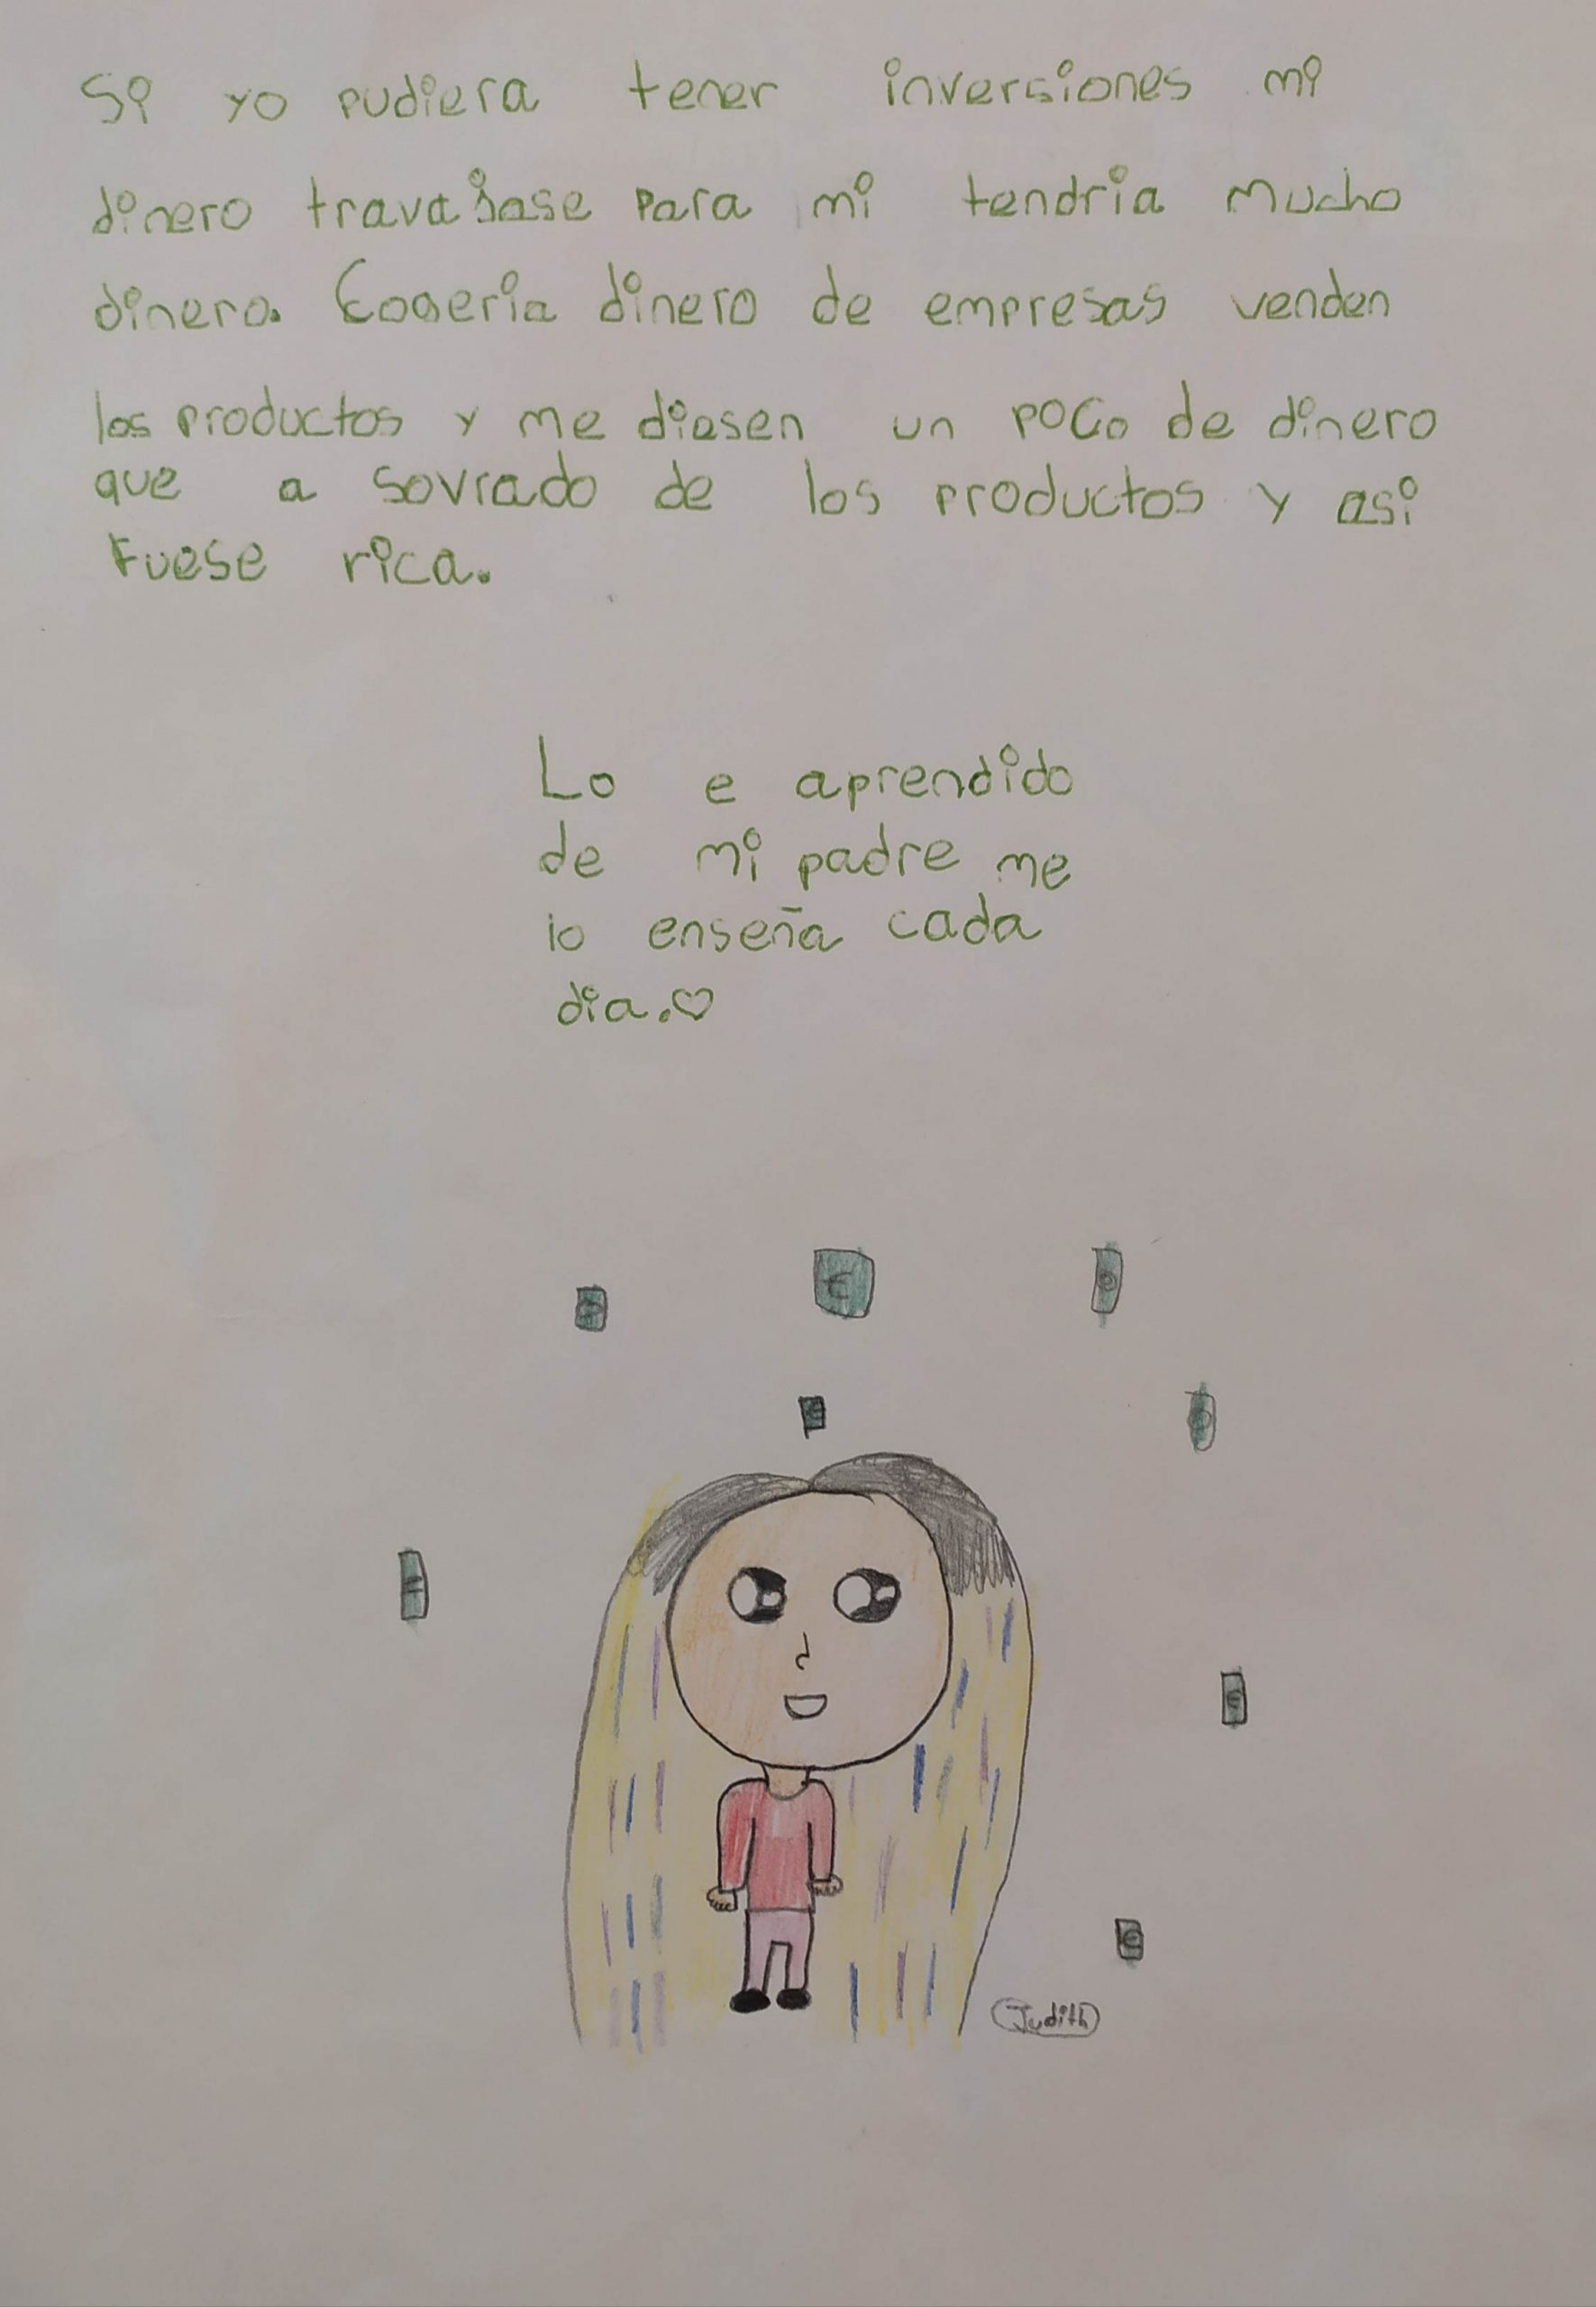 Si yo pudiera tener inversiones mi
dinero travajase para mi tendria mucho
dinero. Cogeria dinero de empresas venden
los productos y me diesen un poco de dinero
que a sovrado de los productos y asi
Fuese rica.
Lo e aprendido
de mi padre me
lo enseña cada
dia.♡
€
€
€
€
€
Judith